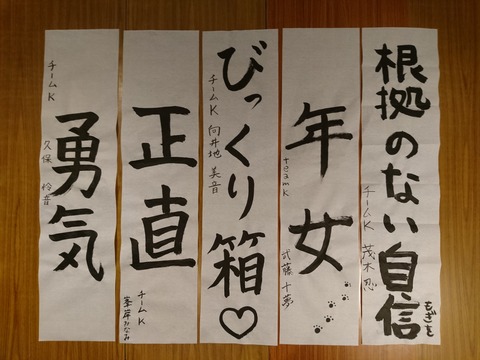 根拠のない自信
チームK 茂木忍
もぎを
年女
teamK 武藤十夢
びっくり箱♡
チームK 向井地美音
正直
チームK
峯岸みなみ
勇気
チームK
久保怜音